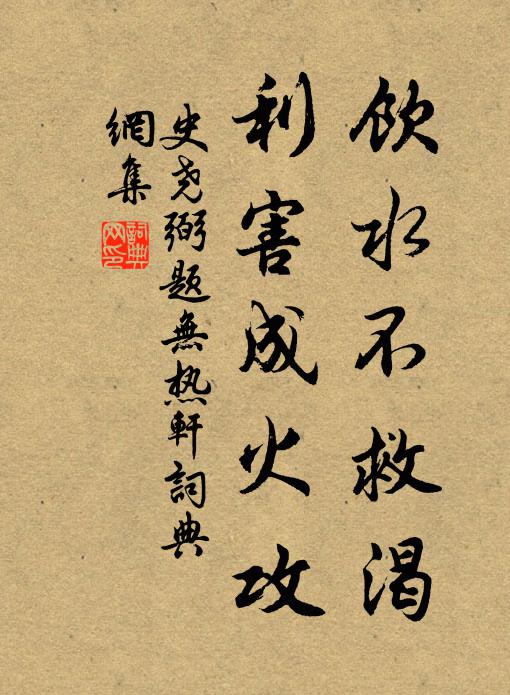 飲水不救渴
利害成火攻
史尭弼題無热軒詞典
網集
詞典
网印